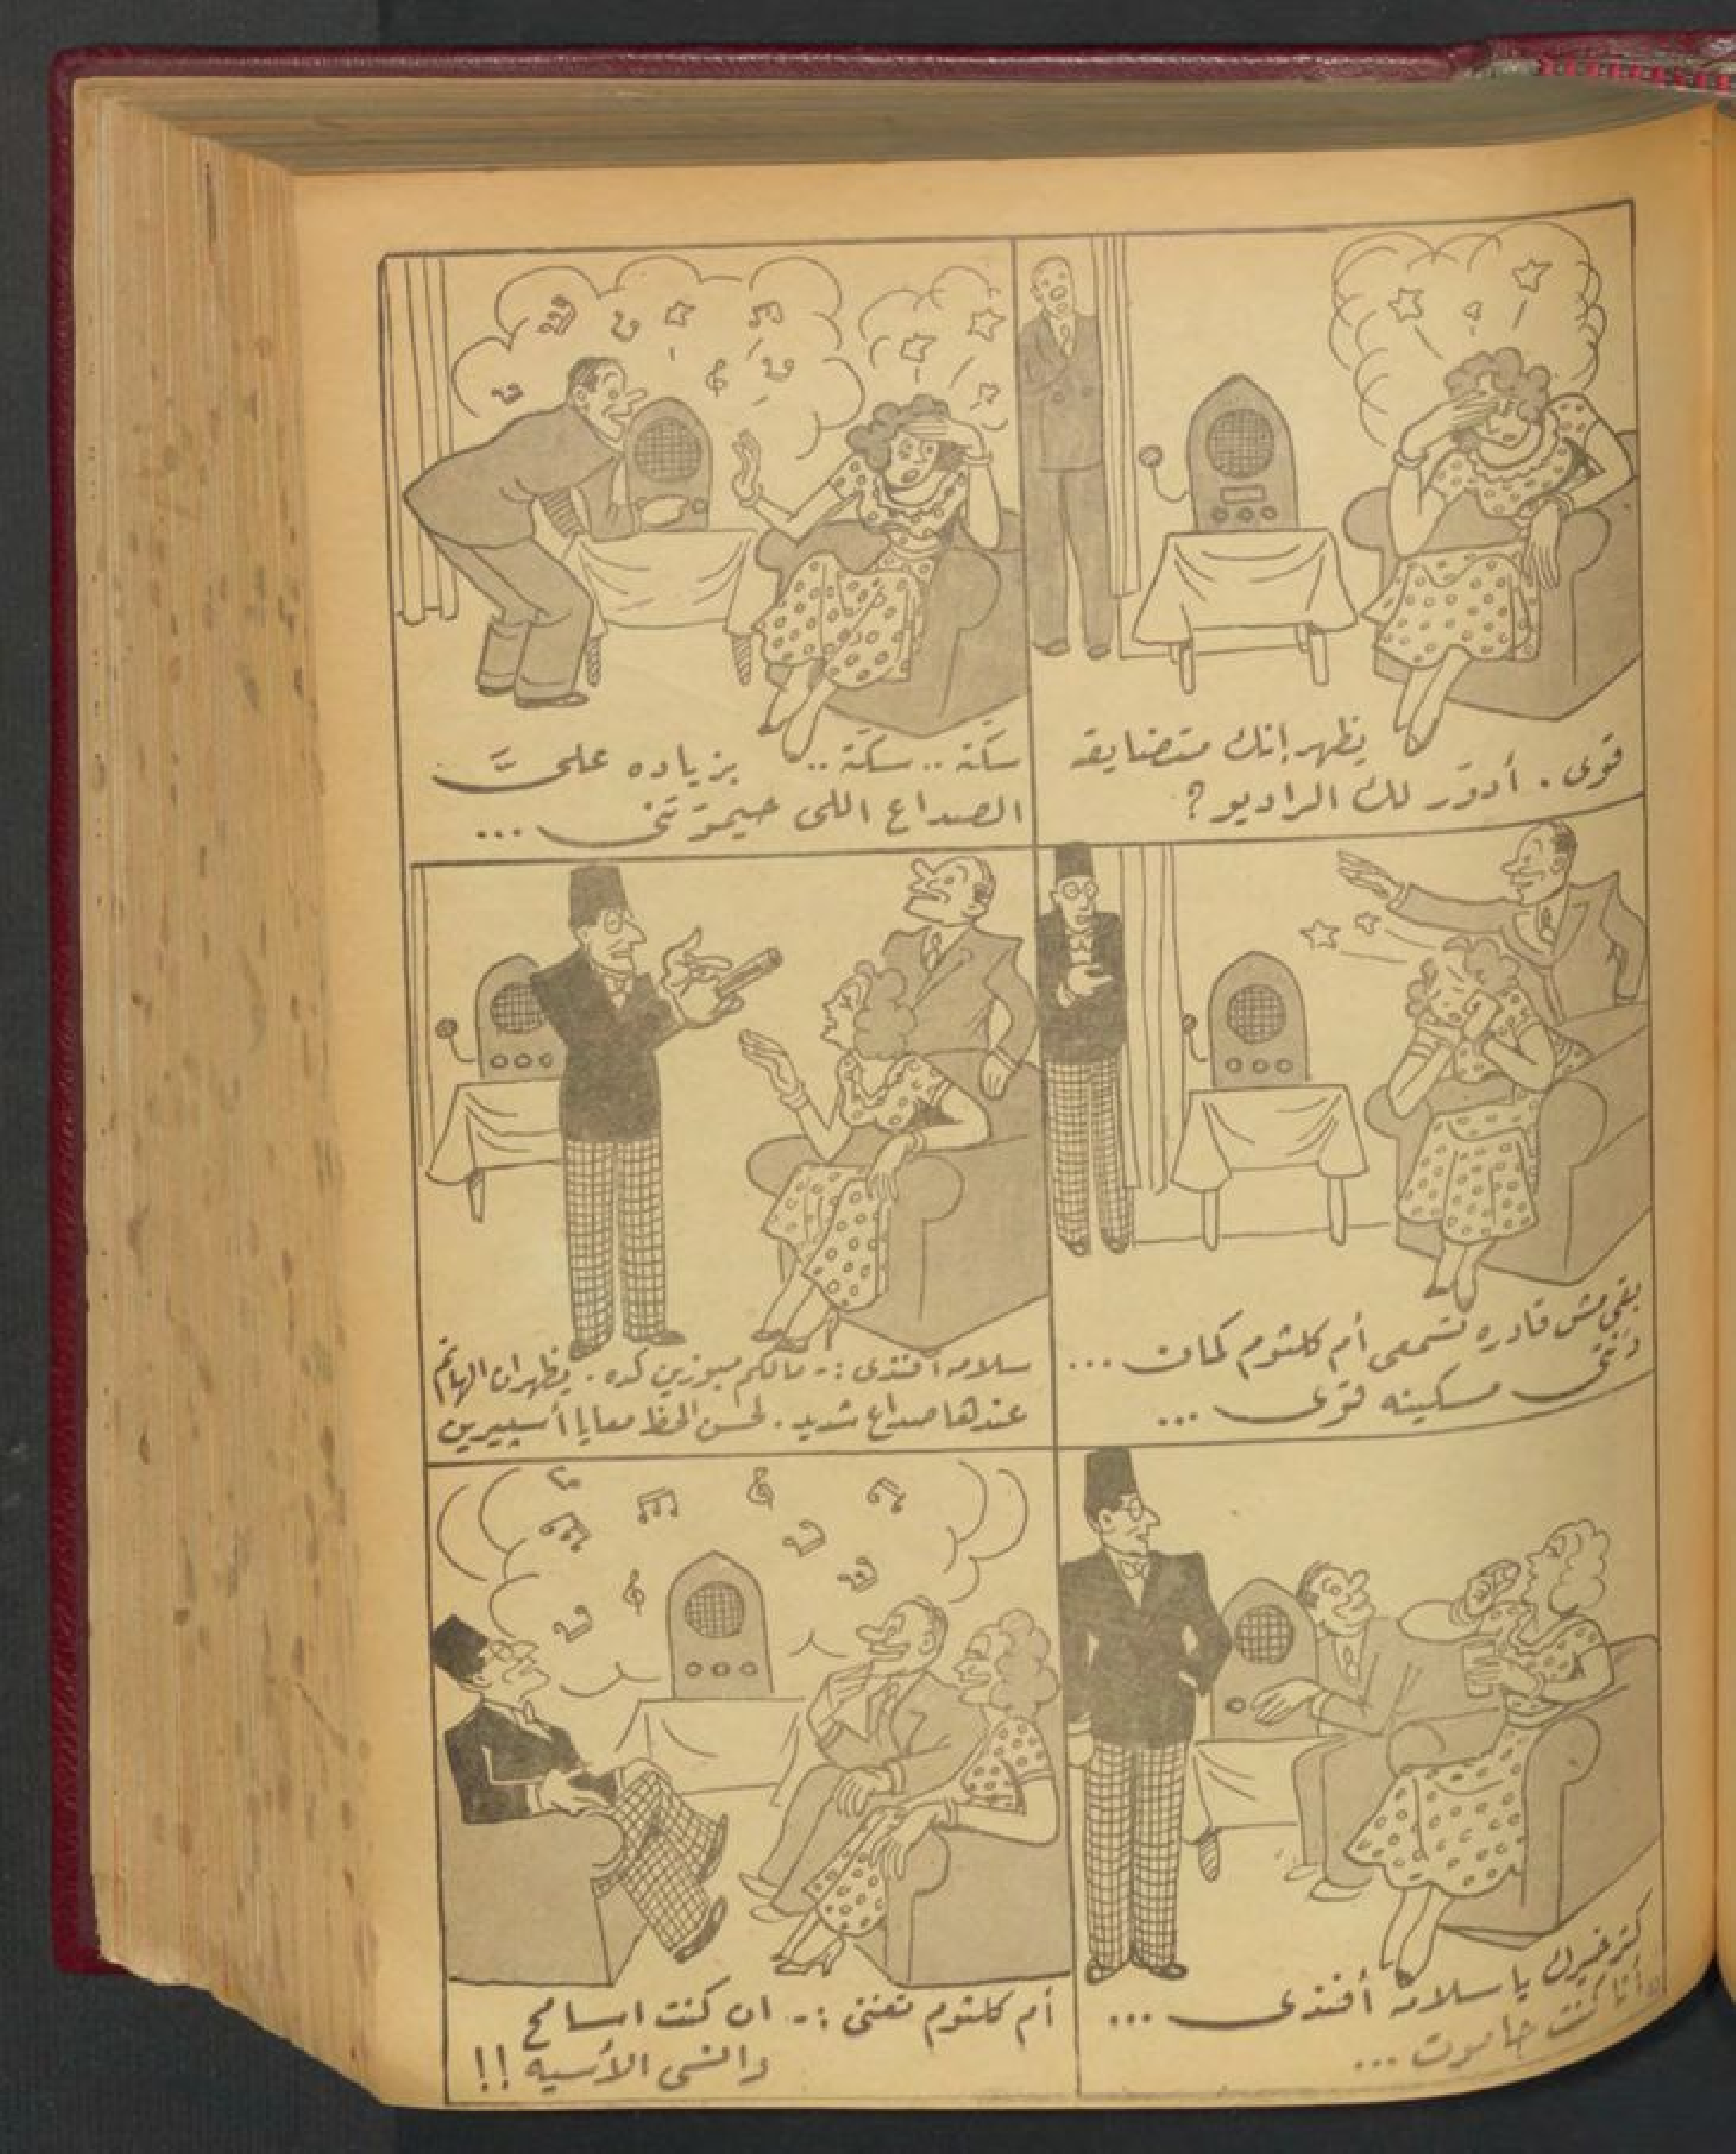 يظهر إنك متضايقه
قوى . أدوّر لك الراديو ؟
سكّتة .. سكّتة .. بزياده علىَّ
الصداع اللى حيموّتنى ...
بقى مش قادره تسمعى أم كلثوم كمان ...
دنتى مسكينه قوى ...
سلامه افندى :- مالكم مبوزين كده . يظهر ان الهانم
عندها صداع شديد . لحسن الحظ معايا أسبيرين
كتر خيرك يا سلامه أفندى ...
أنا كنت حاموت ...
أم كلثوم تغنى :- ان كنت اسامح
وانسى الأسيه !!